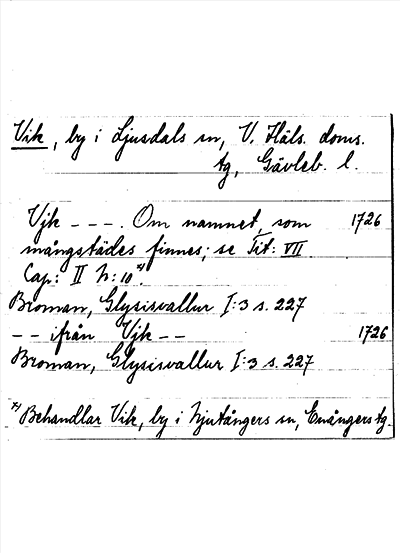 Vik, by i Ljusdals sn, V. Häls. doms.
tg, Gävleb. l.
Vjk - - - . Om namnet, som 1726
mångstädes finnes; se Tit: VII
Cap: II N:10 *).
Broman, Glysisvallur I:3 s. 227
- - ifrån Vjk - - 1726
Broman, Glysisvallur I:3 s. 227
*) Behandlar Vik, by i Njutångers sn, Enångers tg.